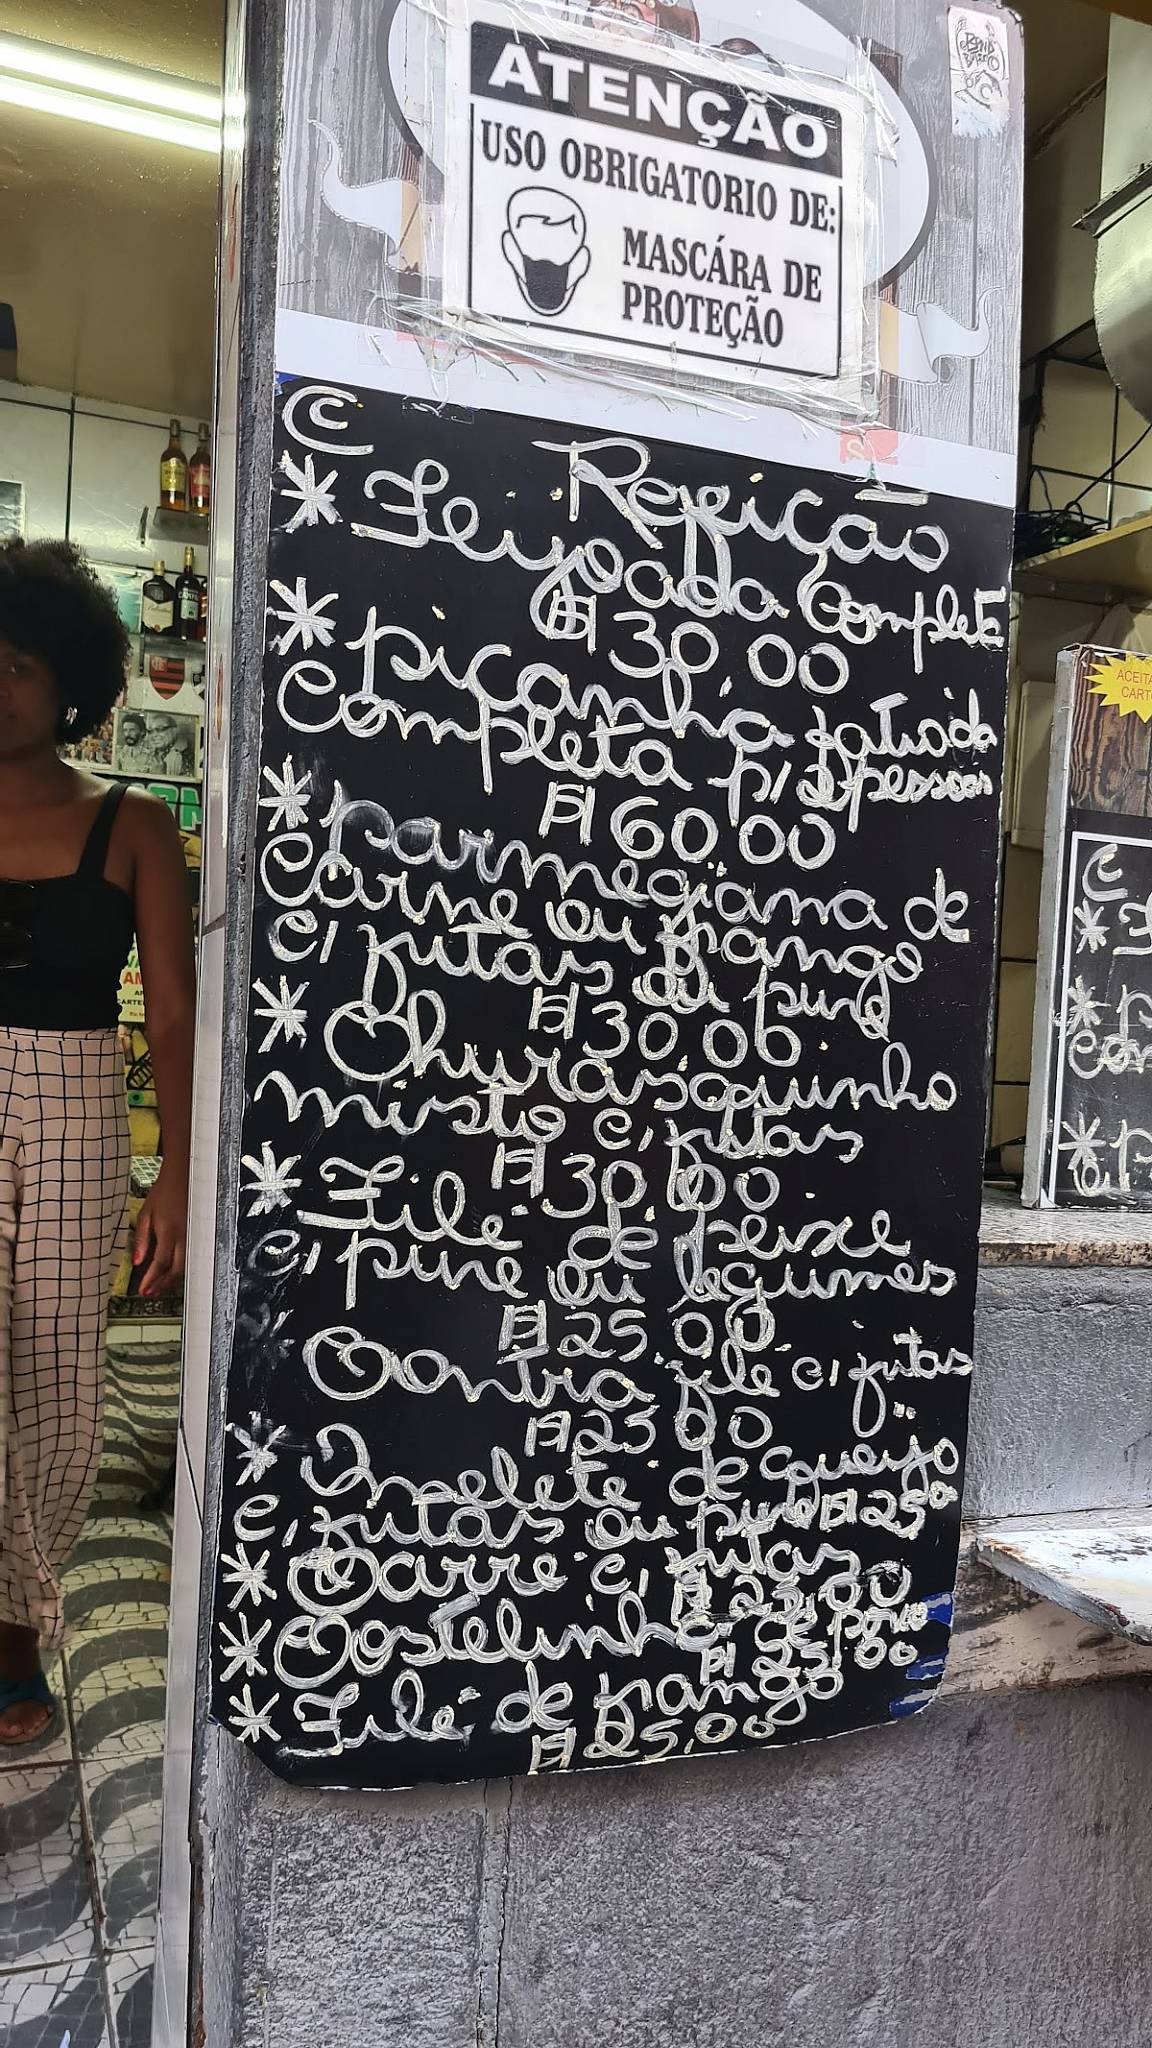 ATENÇÃO
USO OBRIGATORIO DE:
MASCÁRA DE
PROTEÇÃO
Refeição
* Feijoada Completa
R$ 30,00
* picanha fatiada
Completa p/ 2 pessoas
R$ 60,00
* parmegiana de
Carne ou frango
c/ fritas ou pure
R$ 30,00
* Churasquinho
misto c/ fritas
R$ 30,00
* Filé de peixe
c/ pure ou legumes
R$ 25,00
Contra filé c/ fritas
R$ 25,00
* Omelete de queijo
c/ fritas ou pure R$ 25,00
* Carre c/ fritas
R$ 25,00
* Costelinha de porco
R$ 25,00
* Filé de frango
R$ 25,00
ACEITA
CART